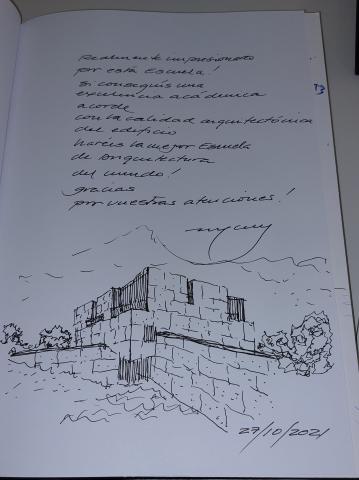 Realmente impresionado
por esta Escuela!
si conseguís una
excelencia académica
acorde
con la calidad arquitectónica
del edificio
haréis la mejor Escuela
de Arquitectura
del mundo!
gracias
por vuestras atenciones!
27/10/2021